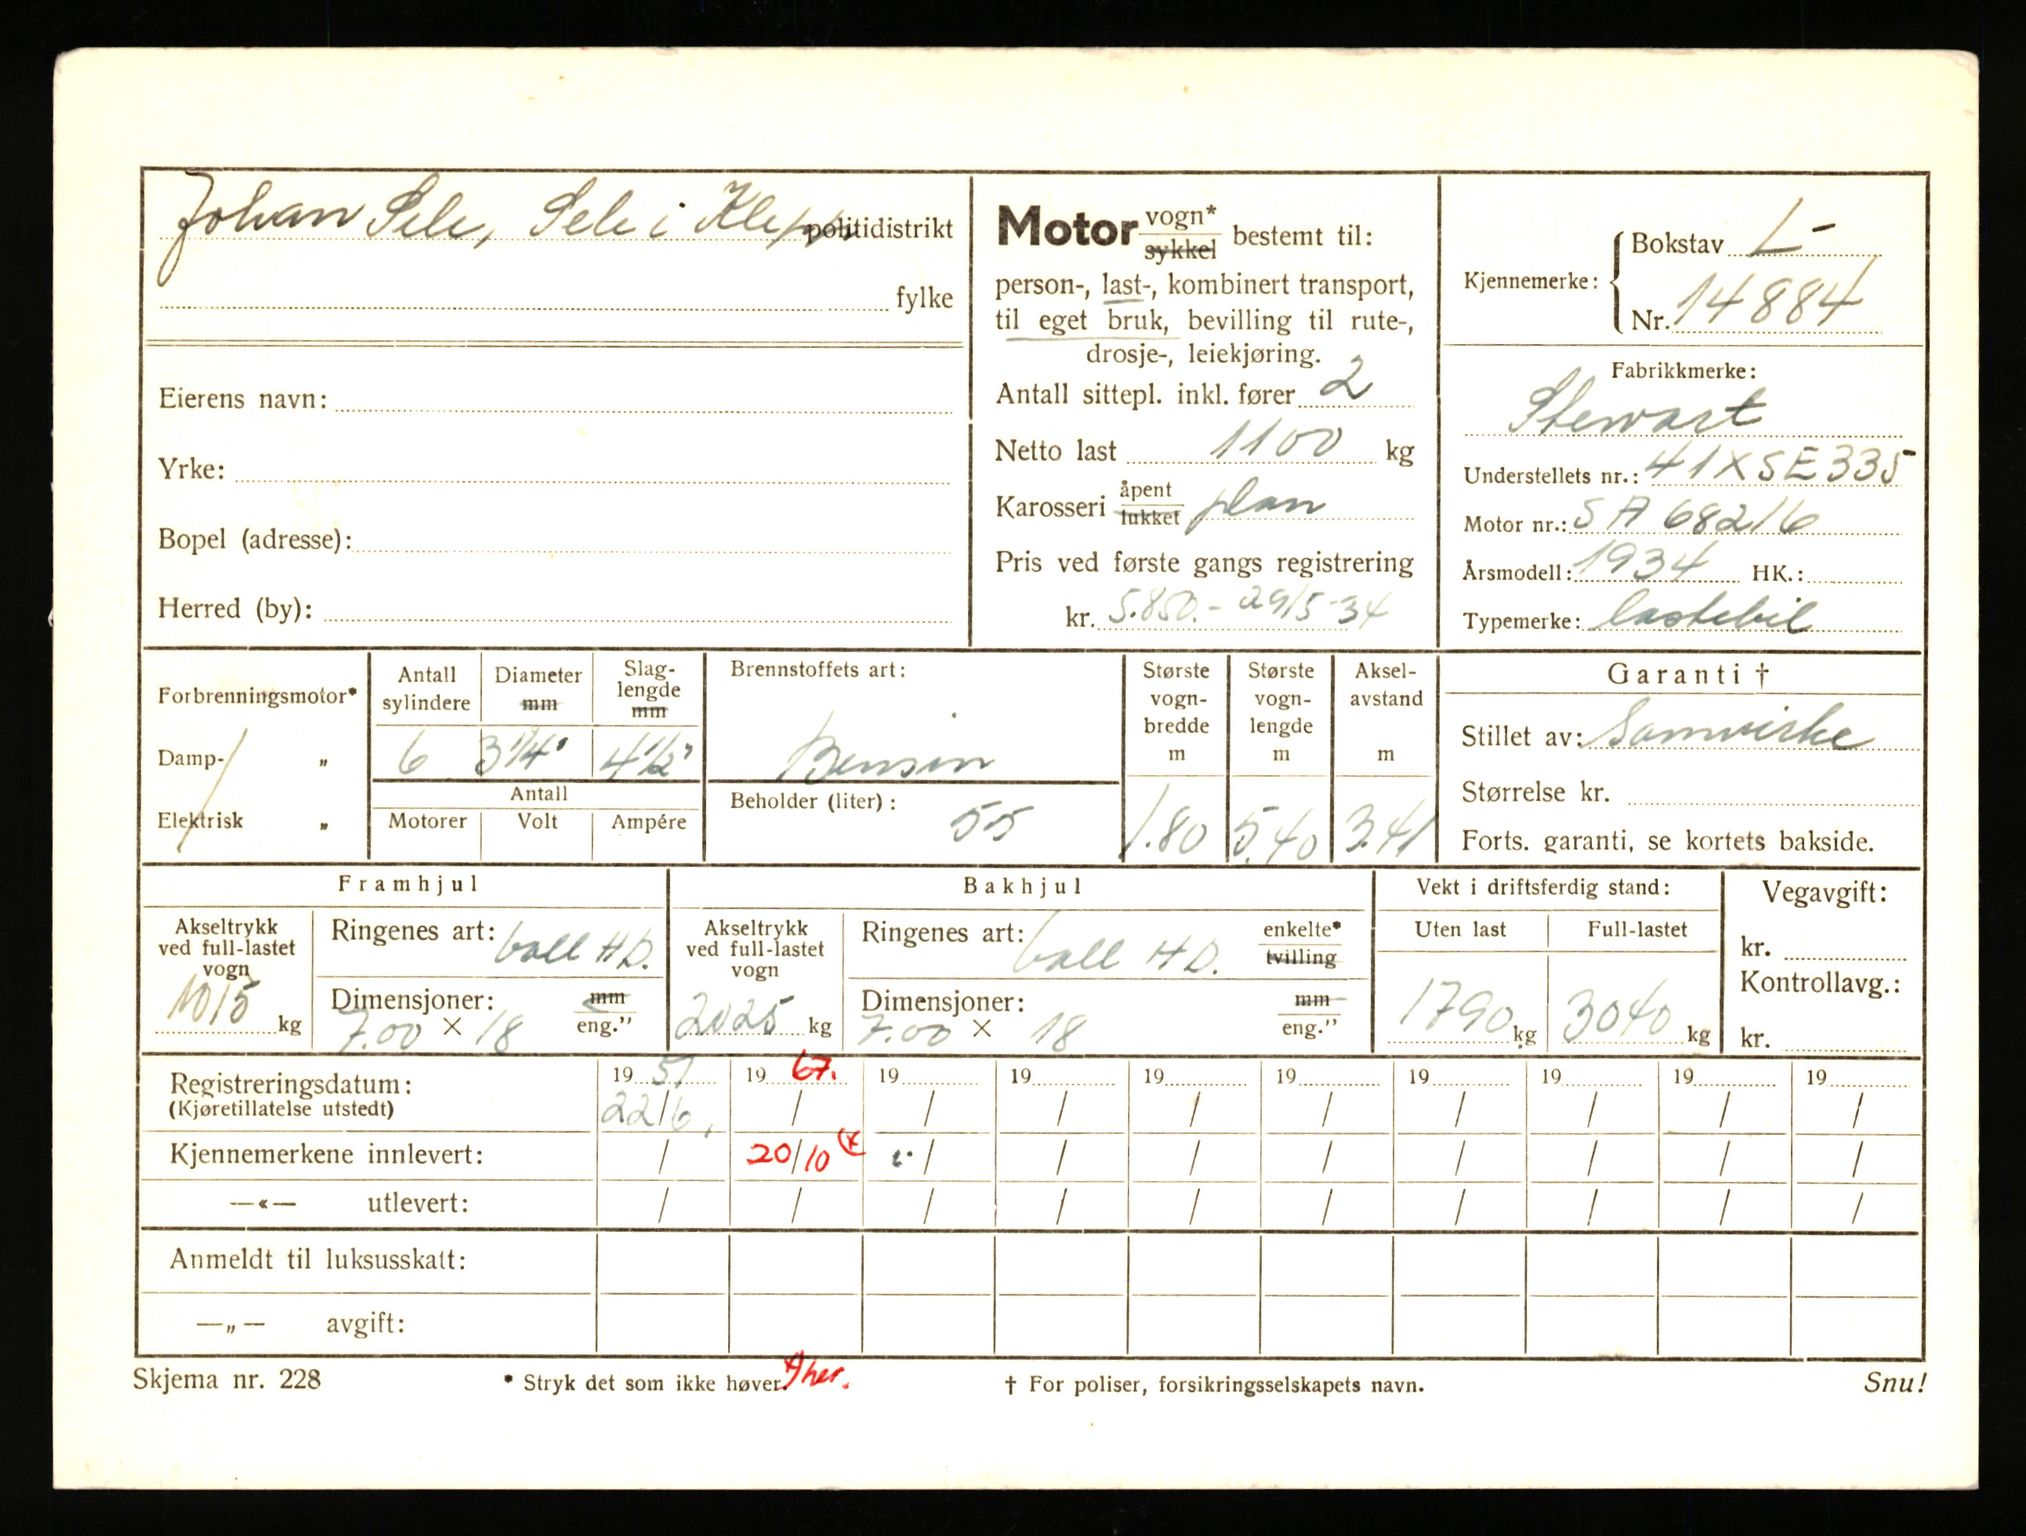 Johan Sele, Sele i Klepp politidistrikt
fylke
Eierens navn:
Yrke:
Bopel (adresse):
Herred (by):
Motor vogn* sykkel bestemt til:
person-, last-, kombinert transport,
til eget bruk, bevilling til rute-,
drosje-, leiekjøring.
Antall sittepl. inkl. fører 2
Netto last 1100 kg
Karosseri åpent lukket plan
Pris ved første gangs registrering
kr. 5.850.- 29/5-34
Kjennemerke: Bokstav L-
Nr. 14884
Fabrikkmerke:
Stewart
Understellets nr.: 41XSE335
Motor nr.: SA 68216
Årsmodell: 1934 HK.:
Typemerke: lastebil
Forbrenningsmotor*
Damp- "
Elektrisk "
Antall sylindere
6
Diameter mm
3 1/4"
Slag-lengde mm
4 1/2"
Antall
Motorer Volt Ampére
Brennstoffets art:
Bensin
Beholder (liter): 55
Største vogn-bredde m
1.80
Største vogn-lengde m
5.40
Aksel-avstand m
3.41
Garanti †
Stillet av: Samvirke
Størrelse kr.
Forts. garanti, se kortets bakside.
Framhjul
Akseltrykk ved full-lastet vogn
1015 kg
Ringenes art: ball HD.
Dimensjoner: mm
7.00 × 18 eng."
Bakhjul
Akseltrykk ved full-lastet vogn
2025 kg
Ringenes art: ball HD. enkelte* tvilling
Dimensjoner: mm
7.00 × 18 eng."
Vekt i driftsferdig stand:
Uten last Full-lastet
1790 kg 3040 kg
Vegavgift:
kr.
Kontrollavg.:
kr.
Registreringsdatum: 19 51 19 67. 19 19 19 19 19 19 19 19
(Kjøretillatelse utstedt) 22/6. / / / / / / / / /
Kjennemerkene innlevert: / 20/10 / / / / / / / /
—«— utlevert: / / / / / / / / / /
Anmeldt til luksusskatt:
—„— avgift:
Skjema nr. 228
* Stryk det som ikke høver.
† For poliser, forsikringsselskapets navn.
Snu!